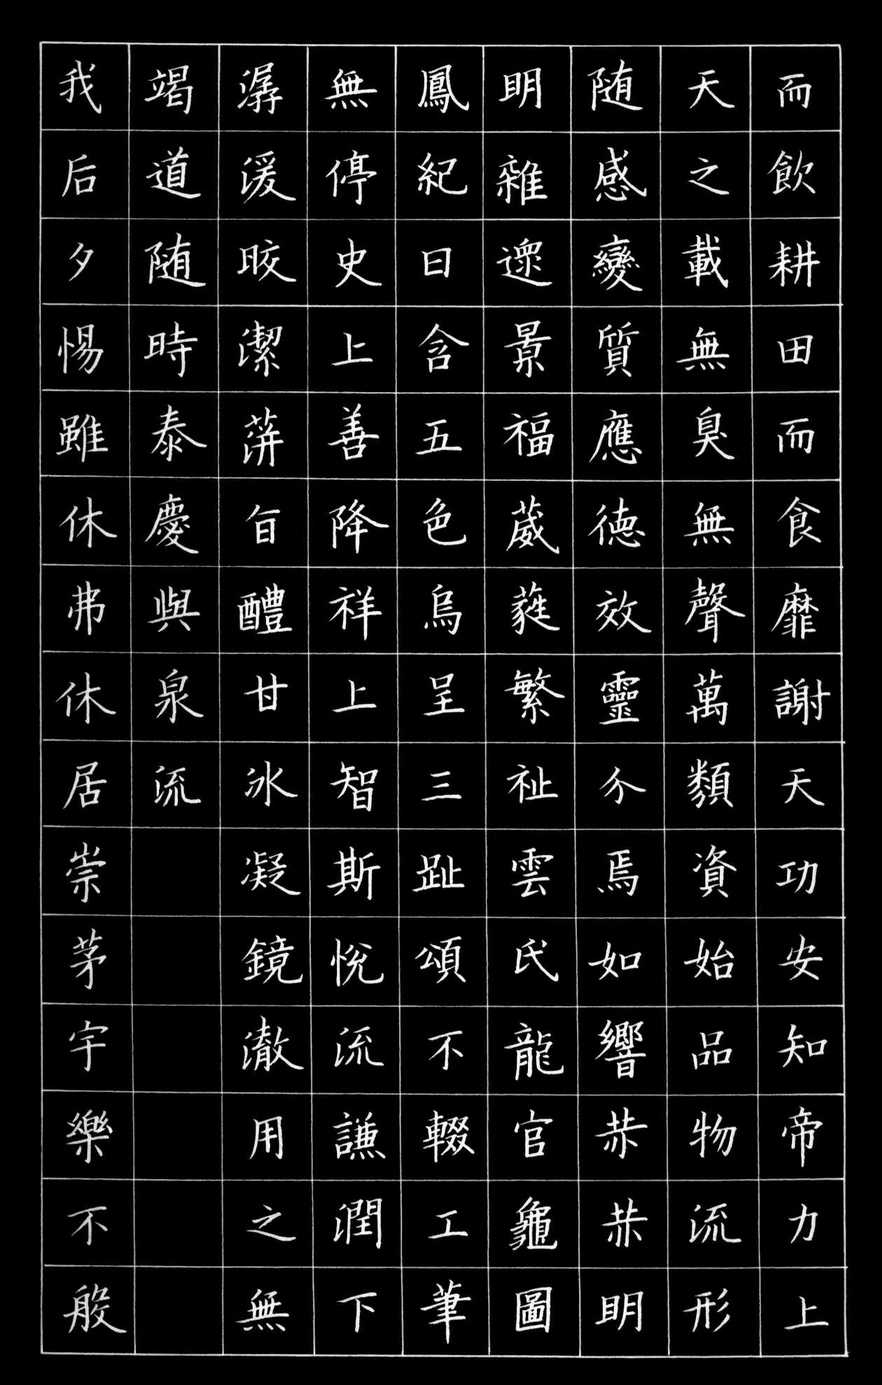 而飲耕田而食靡謝天功安知帝力上
天之載無臭無聲萬類資始品物流形
随感變質應德效靈介焉如響赫赫明
明雜遝景福葳蕤繁祉雲氏龍官龜圖
鳳紀日含五色烏呈三趾頌不輟工筆
無停史上善降祥上智斯悅流謙潤下
潺湲晈潔蓱旨醴甘冰凝鏡澈用之無
竭道随時泰慶與泉流
我后夕惕雖休弗休居崇茅宇樂不般